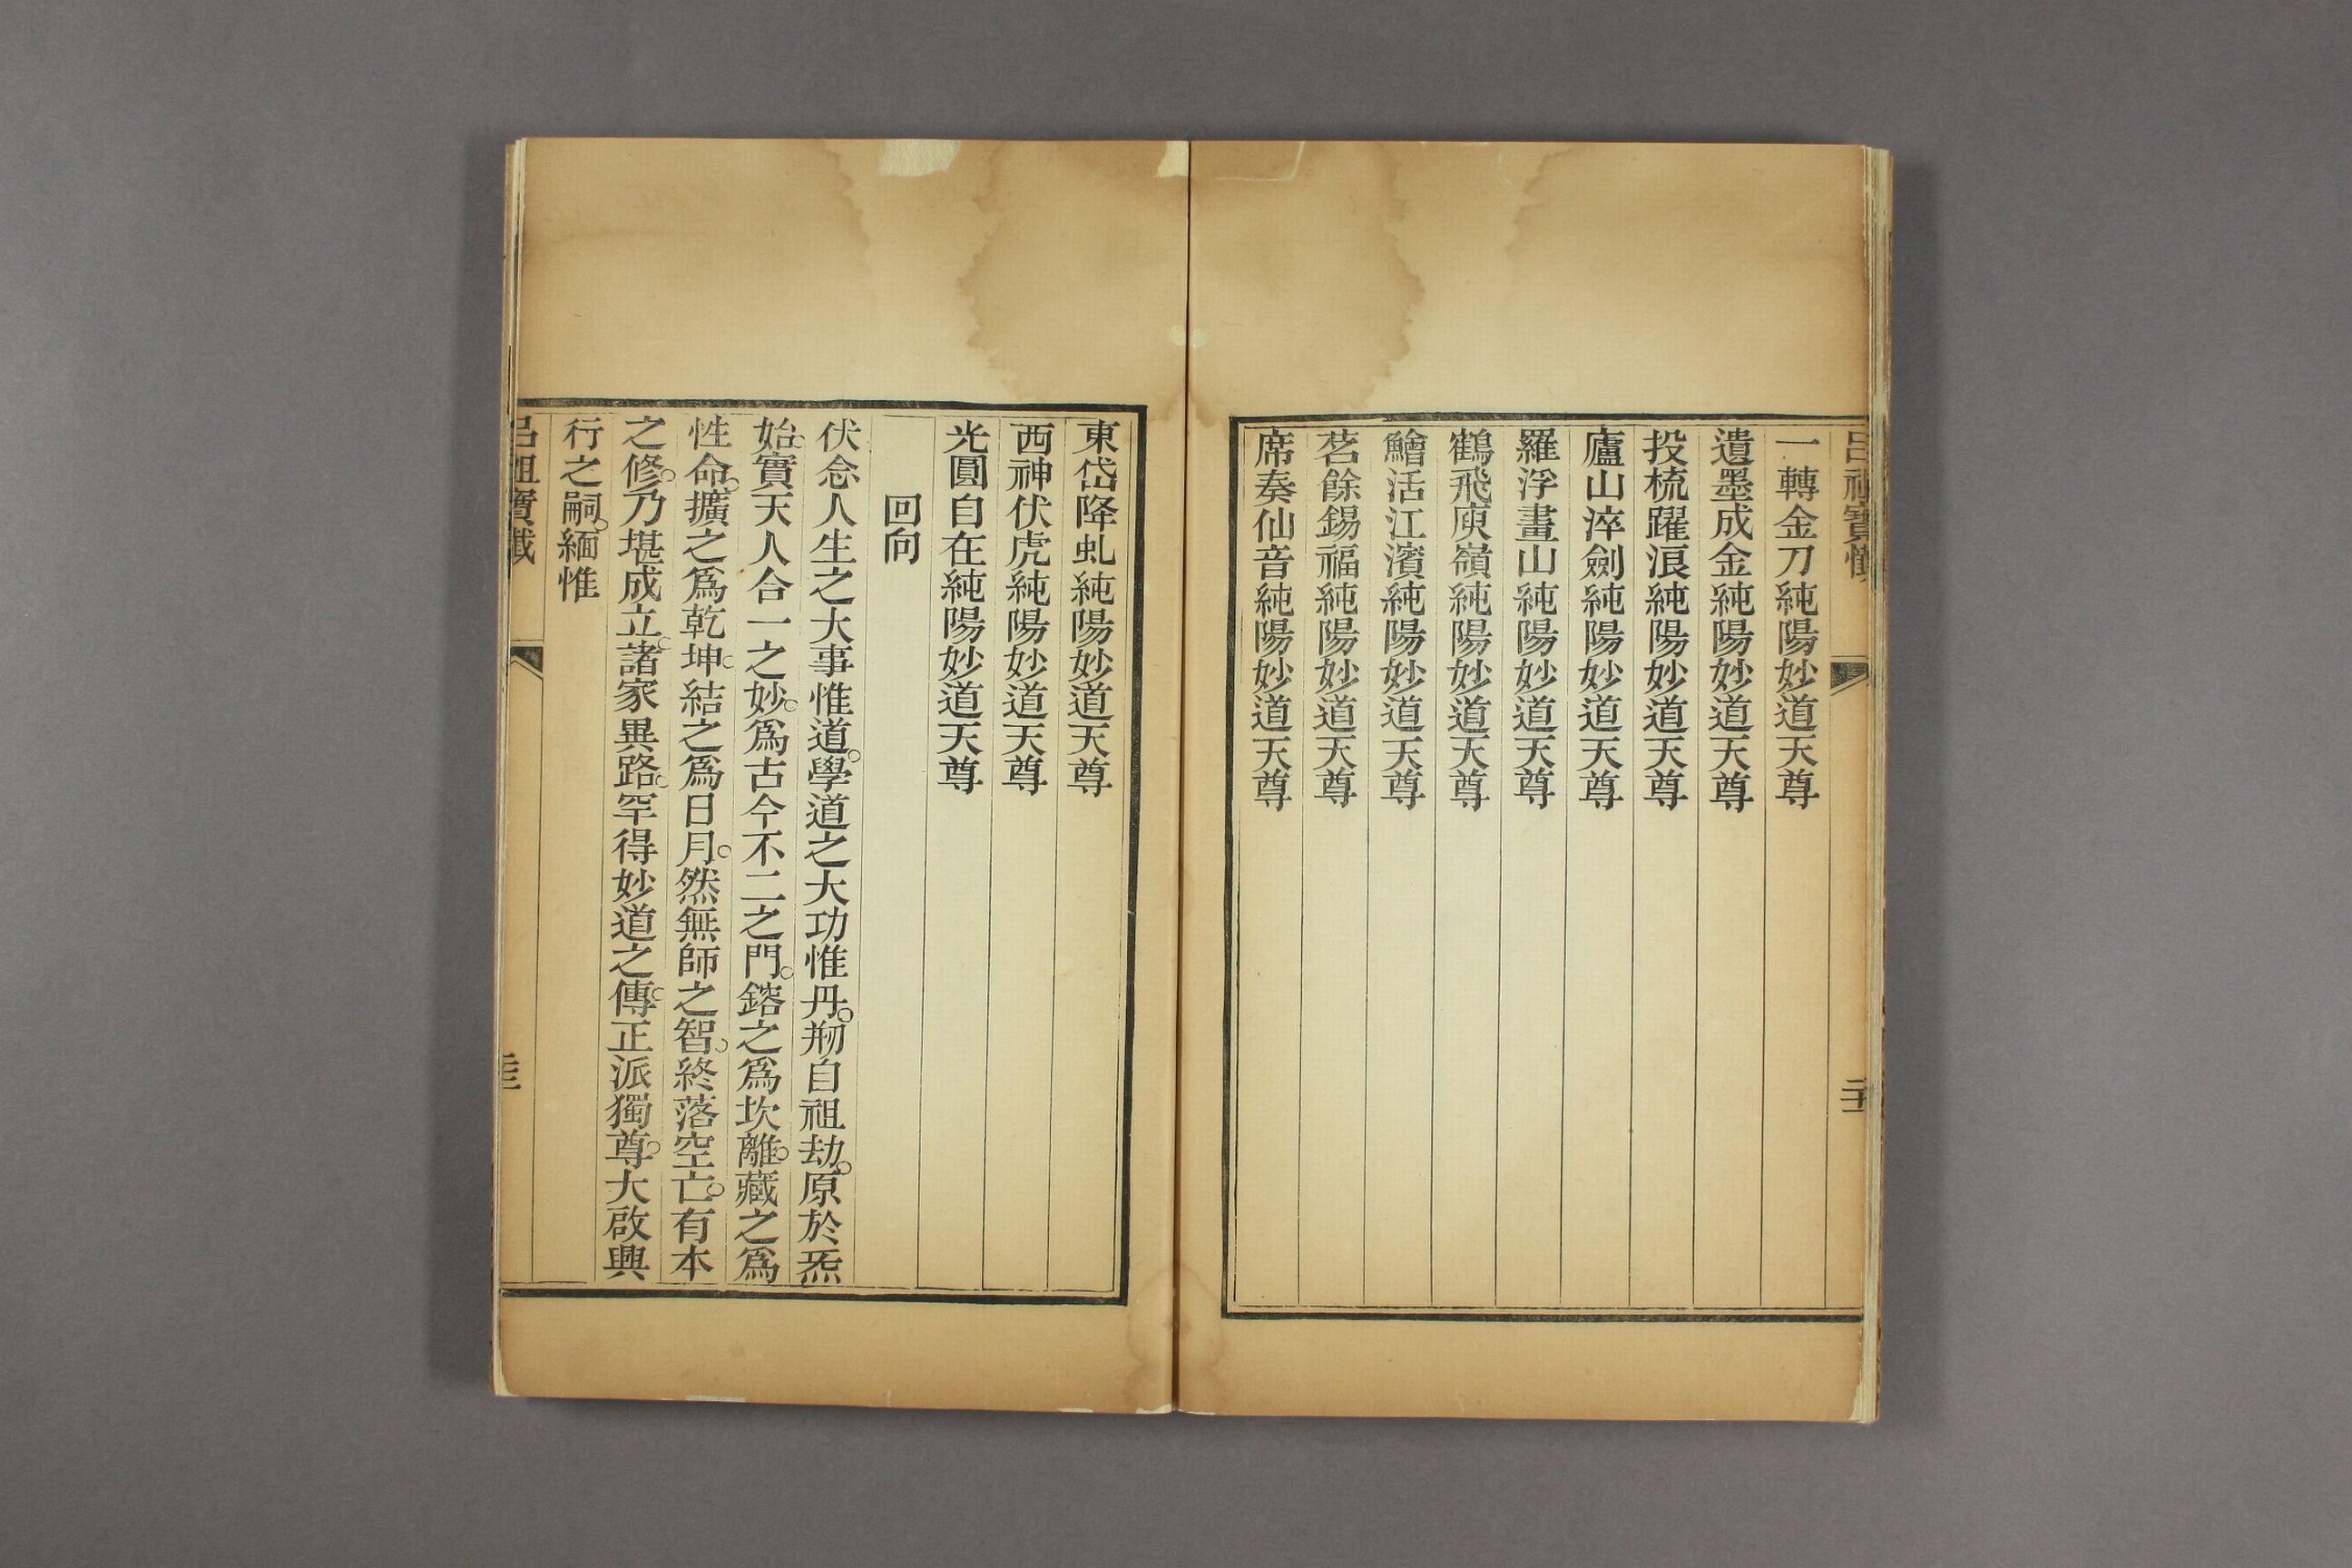 呂祖寶懺
一轉金刀純陽妙道天尊
遺墨成金純陽妙道天尊
投梳躍浪純陽妙道天尊
廬山淬劍純陽妙道天尊
羅浮畫山純陽妙道天尊
鶴飛庾嶺純陽妙道天尊
鱠活江濱純陽妙道天尊
茗餘錫福純陽妙道天尊
席奏仙音純陽妙道天尊
東岱降虬純陽妙道天尊
西神伏虎純陽妙道天尊
光圓自在純陽妙道天尊
回向
伏念人生之大事惟道。學道之大功惟丹。剏自祖劫。原於炁
始。實天人合一之妙。爲古今不二之門。鎔之爲坎離。藏之爲
性命。擴之爲乾坤。結之爲日月。然無師之智。終落空亡。有本
之修。乃堪成立。諸家異路。罕得妙道之傳。正派獨尊。大啟興
行之嗣。緬惟
呂祖寶懺